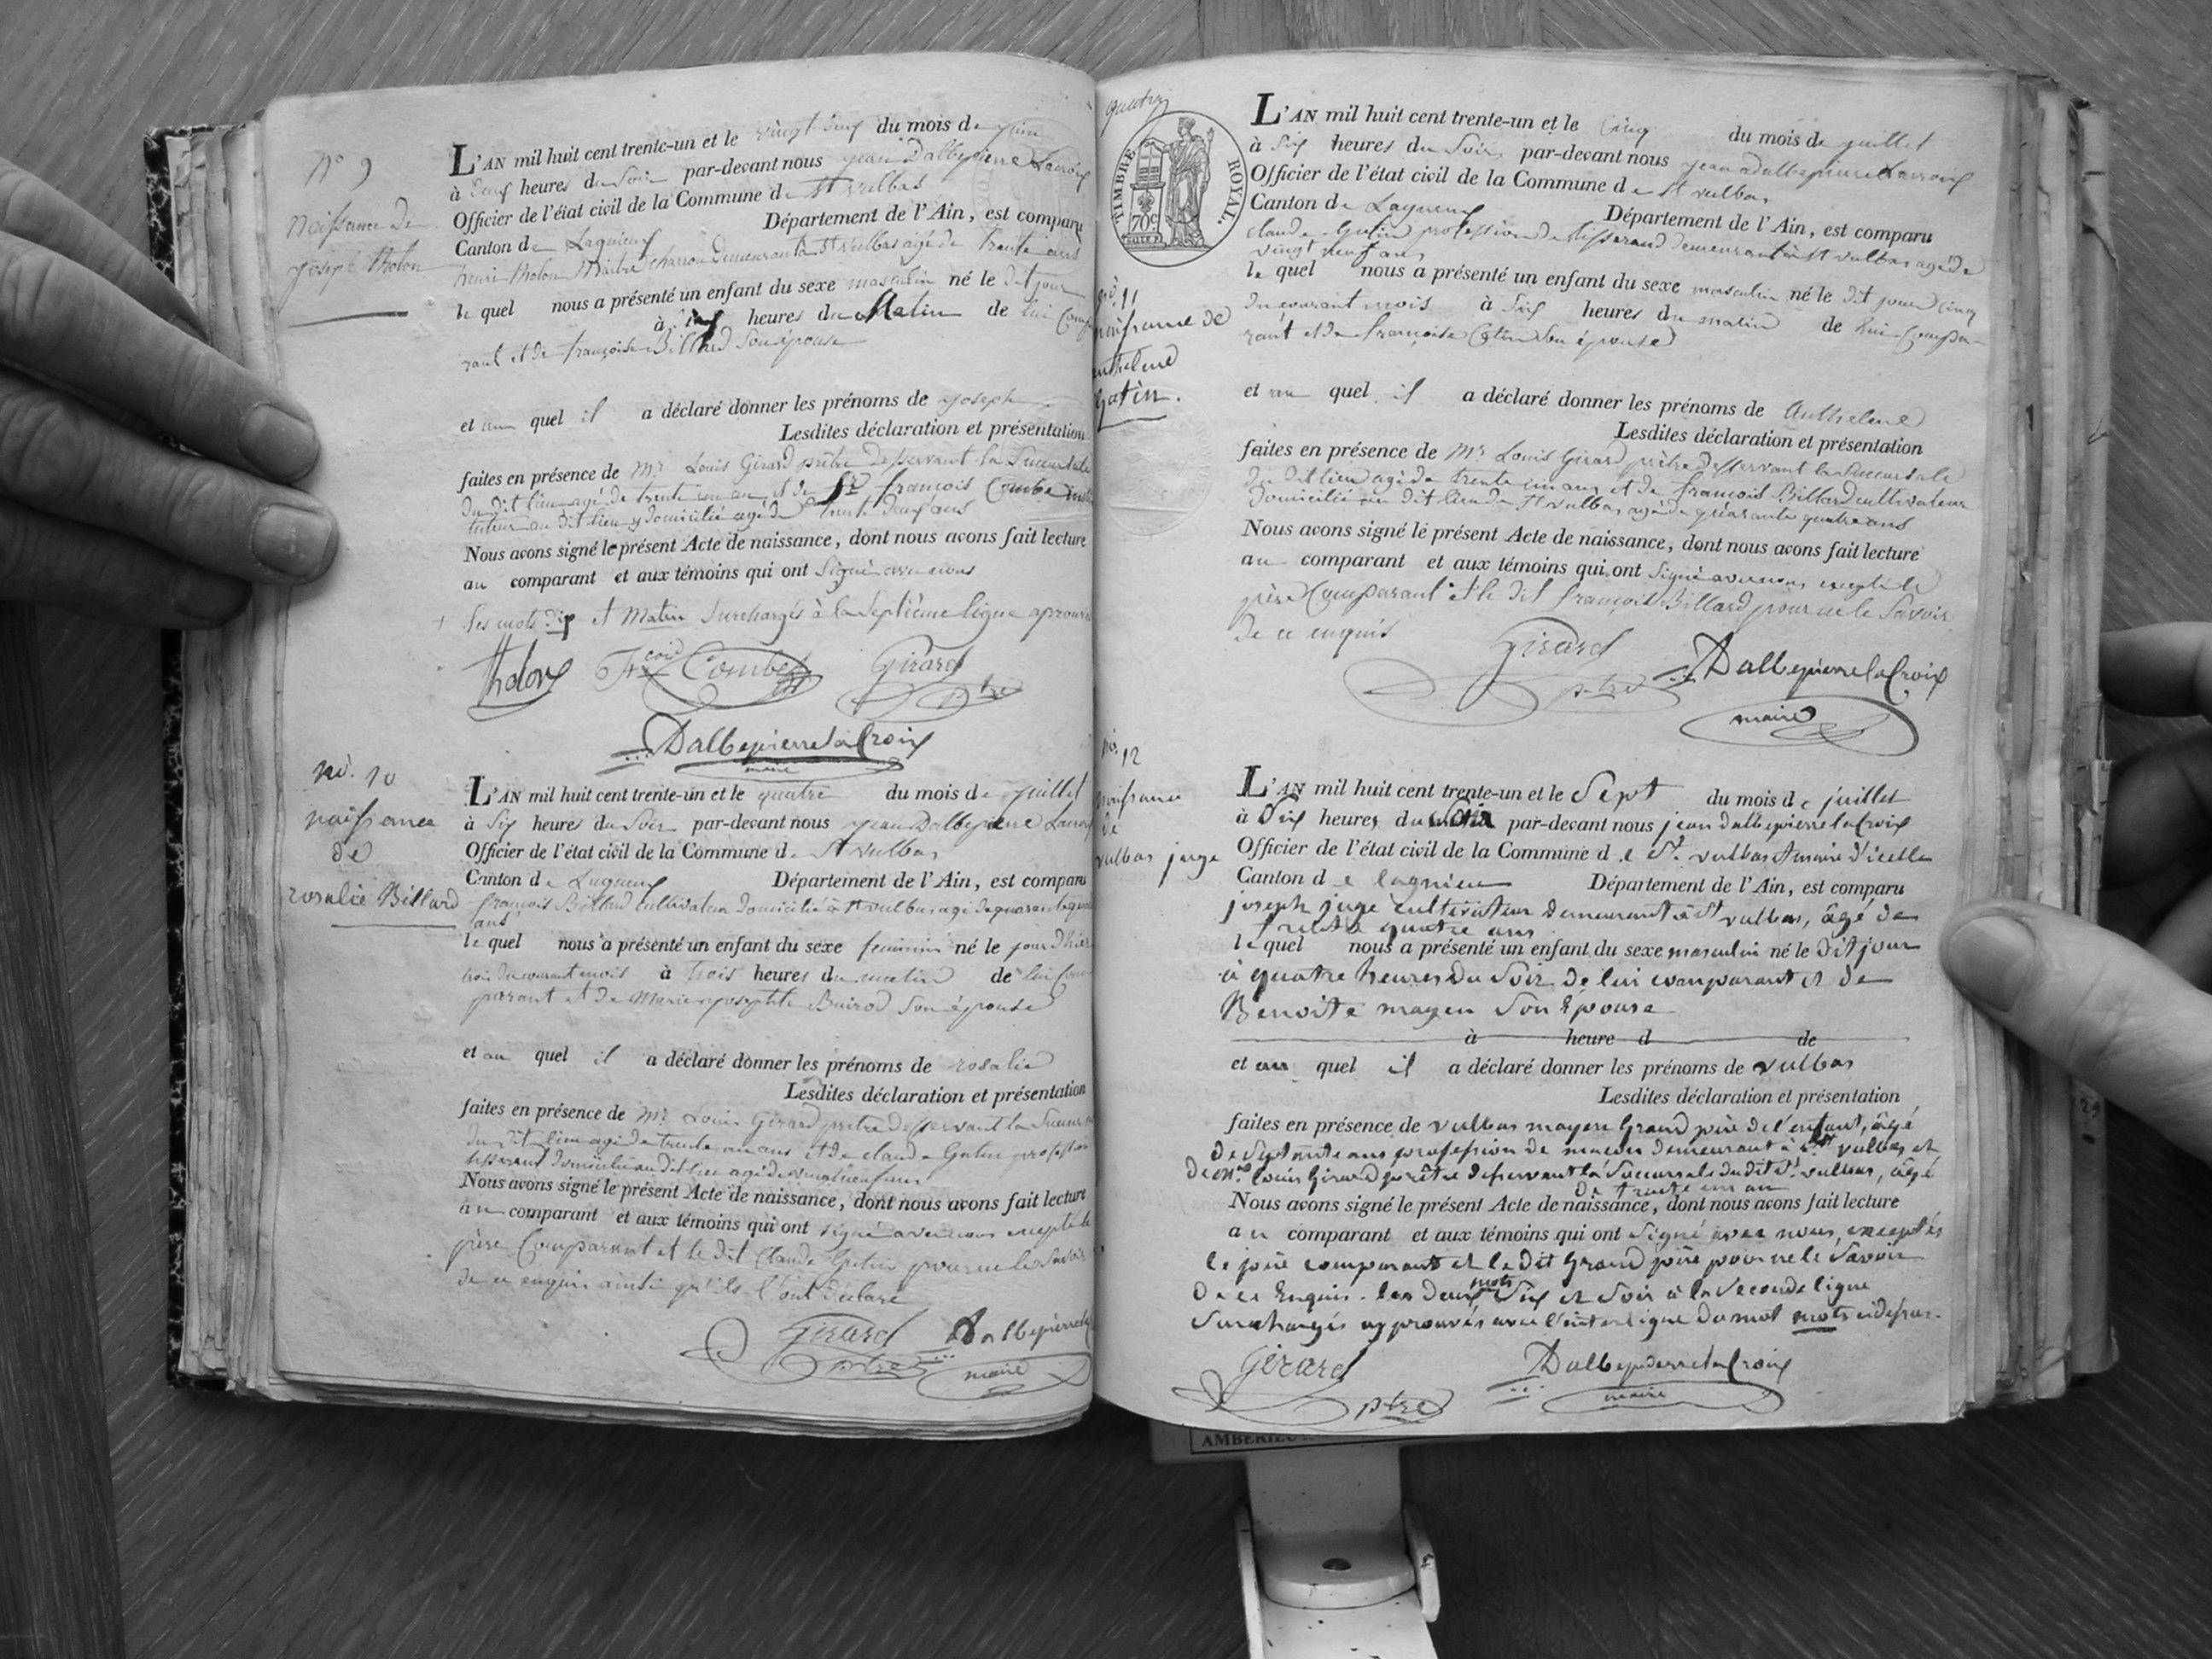 N° 9
Naissance de
joseph tholon
L'AN mil huit cent trente-un et le vingt du mois de juin
à heures du Soir par-devant nous jean Dalbepierre Lacroix
Officier de l'état civil de la Commune de St vulbas
Canton de Lagnieux Département de l'Ain, est comparu
henri tholon Maitre charron demeurant à St vulbas agé de trente ans
le quel nous a présenté un enfant du sexe masculin né le dit jour
à heures du Matin de lui compa
rant et de françoise Billard son épouse
et au quel il a déclaré donner les prénoms de joseph
Lesdites déclaration et présentation
faites en présence de Mr Louis Girard prêtre desservant la Succursale
du dit lieu agé de trente un an et de Sr françois Combe insti
tuteur au dit lieu y domicilié agé de trente deux ans
Nous avons signé le présent Acte de naissance, dont nous avons fait lecture
au comparant et aux témoins qui ont signé avec nous
+ les mots dix et Matin Surchargés à la Septième ligne aprouvés
tholon Combe Girard ptre
Dalbepierre la Croix
maire
no. 10
naissance
de
rosalie Billard
L'AN mil huit cent trente-un et le quatre du mois de juillet
à Six heures du Soir par-devant nous jean Dalbepierre Lacroix
Officier de l'état civil de la Commune de St vulbas
Canton de Lagnieux Département de l'Ain, est comparu
françois Billard cultivateur domicilié à St vulbas agé de quarante quatre
ans
le quel nous a présenté un enfant du sexe feminin né le jour d'hier
trois du courant mois à trois heures du matin de lui com
parant et de Marie josephte Buirod son épouse
et au quel il a déclaré donner les prénoms de rosalie
Lesdites déclaration et présentation
faites en présence de Mr Louis Girard prêtre desservant la Succursale
du dit lieu agé de trente un ans et de claude Gutin profession
tisserand domicilié au dit lieu agé de vingt neuf ans
Nous avons signé le présent Acte de naissance, dont nous avons fait lecture
au comparant et aux témoins qui ont signé avec nous excepté le
père Comparant et le dit Claude Gutin pour ne le savoir
de ce enquis ainsi qu'ils l'ont déclaré
Girard ptre Dalbepierrela
maire
TIMBRE ROYAL.
70c
no. 11
naissance de
anthelme
gutin.
L'AN mil huit cent trente-un et le cinq du mois de juillet
à Six heures du Soir par-devant nous jean Dalbepierre Lacroix
Officier de l'état civil de la Commune de St vulbas
Canton de Lagnieux Département de l'Ain, est comparu
claude Gutin profession de tisserand demeurant à St vulbas agé de
vingt neuf ans
le quel nous a présenté un enfant du sexe masculin né le dit jour cinq
du courant mois à Six heures du matin de lui compa-
rant et de françoise son épouse
et au quel il a déclaré donner les prénoms de Anthelme
Lesdites déclaration et présentation
faites en présence de Mr Louis Girard prêtre desservant la Succursale
du dit lieu agé de trente un ans et de françois Billard cultivateur
domicilié au dit lieu de St vulbas agé de quarante quatre ans
Nous avons signé le présent Acte de naissance, dont nous avons fait lecture
au comparant et aux témoins qui ont signé avec nous excepté le
père Comparant et le dit françois Billard pour ne le savoir
de ce enquis
Girard ptre Dalbepierre la Croix
maire
no. 12
naissance
de
vulbas juge
L'AN mil huit cent trente-un et le Sept du mois de juillet
à Six heures du Soir par-devant nous jean dalbepierre la Croix
Officier de l'état civil de la Commune de St. vulbas maire d'icelle
Canton de lagnieu Département de l'Ain, est comparu
joseph juge cultivateur demeurant à St vulbas, âgé de
trente quatre ans
le quel nous a présenté un enfant du sexe masculin né le dit jour
à quatre heures du Soir de lui comparant et de
Benoite mayen son Epouse
à heure d de
et au quel il a déclaré donner les prénoms de vulbas
Lesdites déclaration et présentation
faites en présence de vulbas mayen Grand père de l'enfant, âgé
de Septante ans profession de demeurant à St vulbas et
de Mr. louis Girard prêtre desservant la Succursale du dit St. vulbas, âgé
de trente un an
Nous avons signé le présent Acte de naissance, dont nous avons fait lecture
au comparant et aux témoins qui ont Signé avec nous, exceptés
le père comparant et le dit Grand père pour ne le Savoir
de ce Enquis. les deux mots Six et Soir à la Seconde ligne
Surchargés approuvés avec l'interligne du mot mots cidessus.
Girard ptre Dalbepierre la Croix
maire